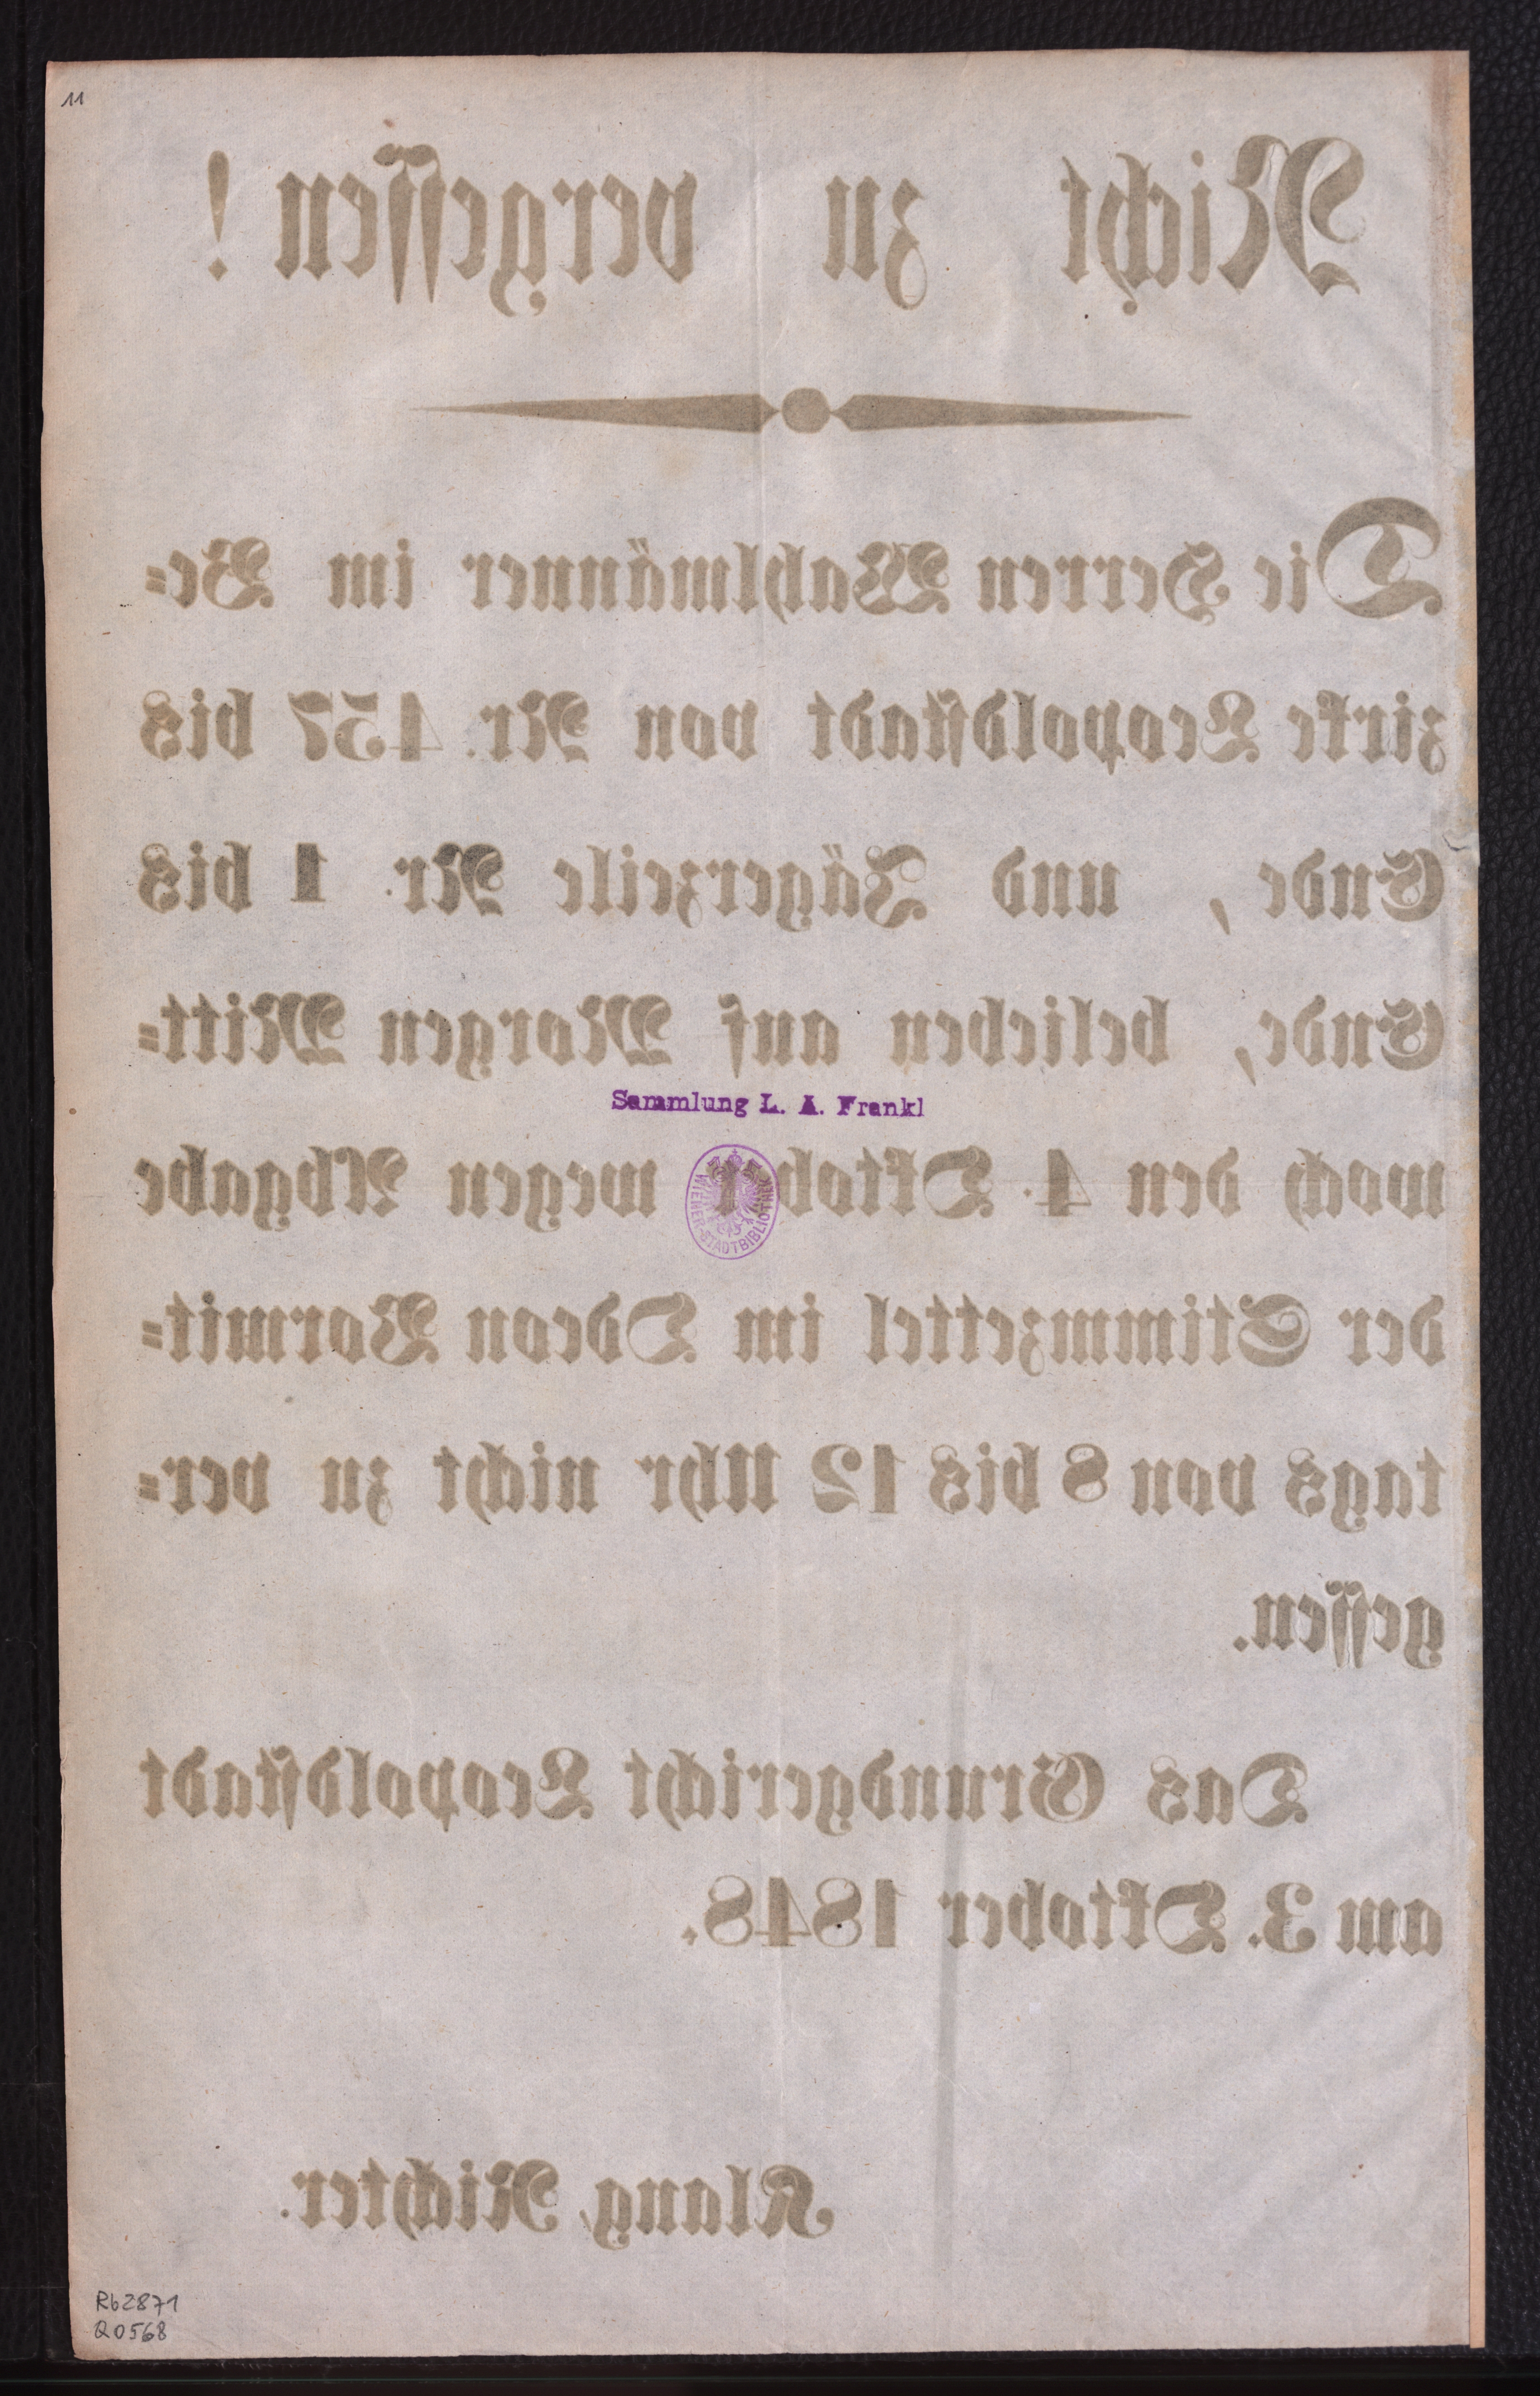 11
Nicht zu vergessen!
Die Herren Wahlmänner im Be=
zirke Leopoldstadt von Nr. 457 bis
Ende, und Jägerzeile Nr. 1 bis
Ende, belieben auf Morgen Mitt=
Sammlung L. A. Frankl
woch den 4. Oktober wegen Abgabe
WIENER-STADTBIBLIOTHEK
der Stimmzettel im Odeon Vormit=
tags von 8 bis 12 Uhr nicht zu ver=
gessen.
Das Grundgericht Leopoldstadt
am 3. Oktober 1848.
Klang, Richter.
Rb2871
Q0568